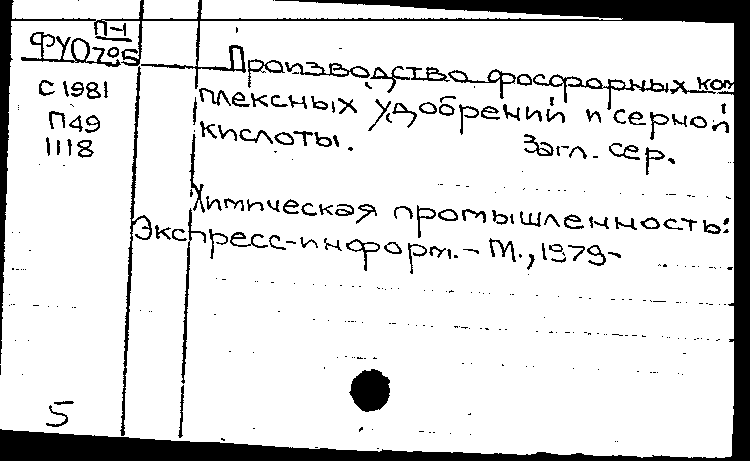 П-1
ФУ0795
Производство фосфорных ком
плексных удобрений и серной
кислоты. Загл. сер.
С 1981
П49
1118
Химическая промышленность:
Экспресс-информ. - М., 1979-
5